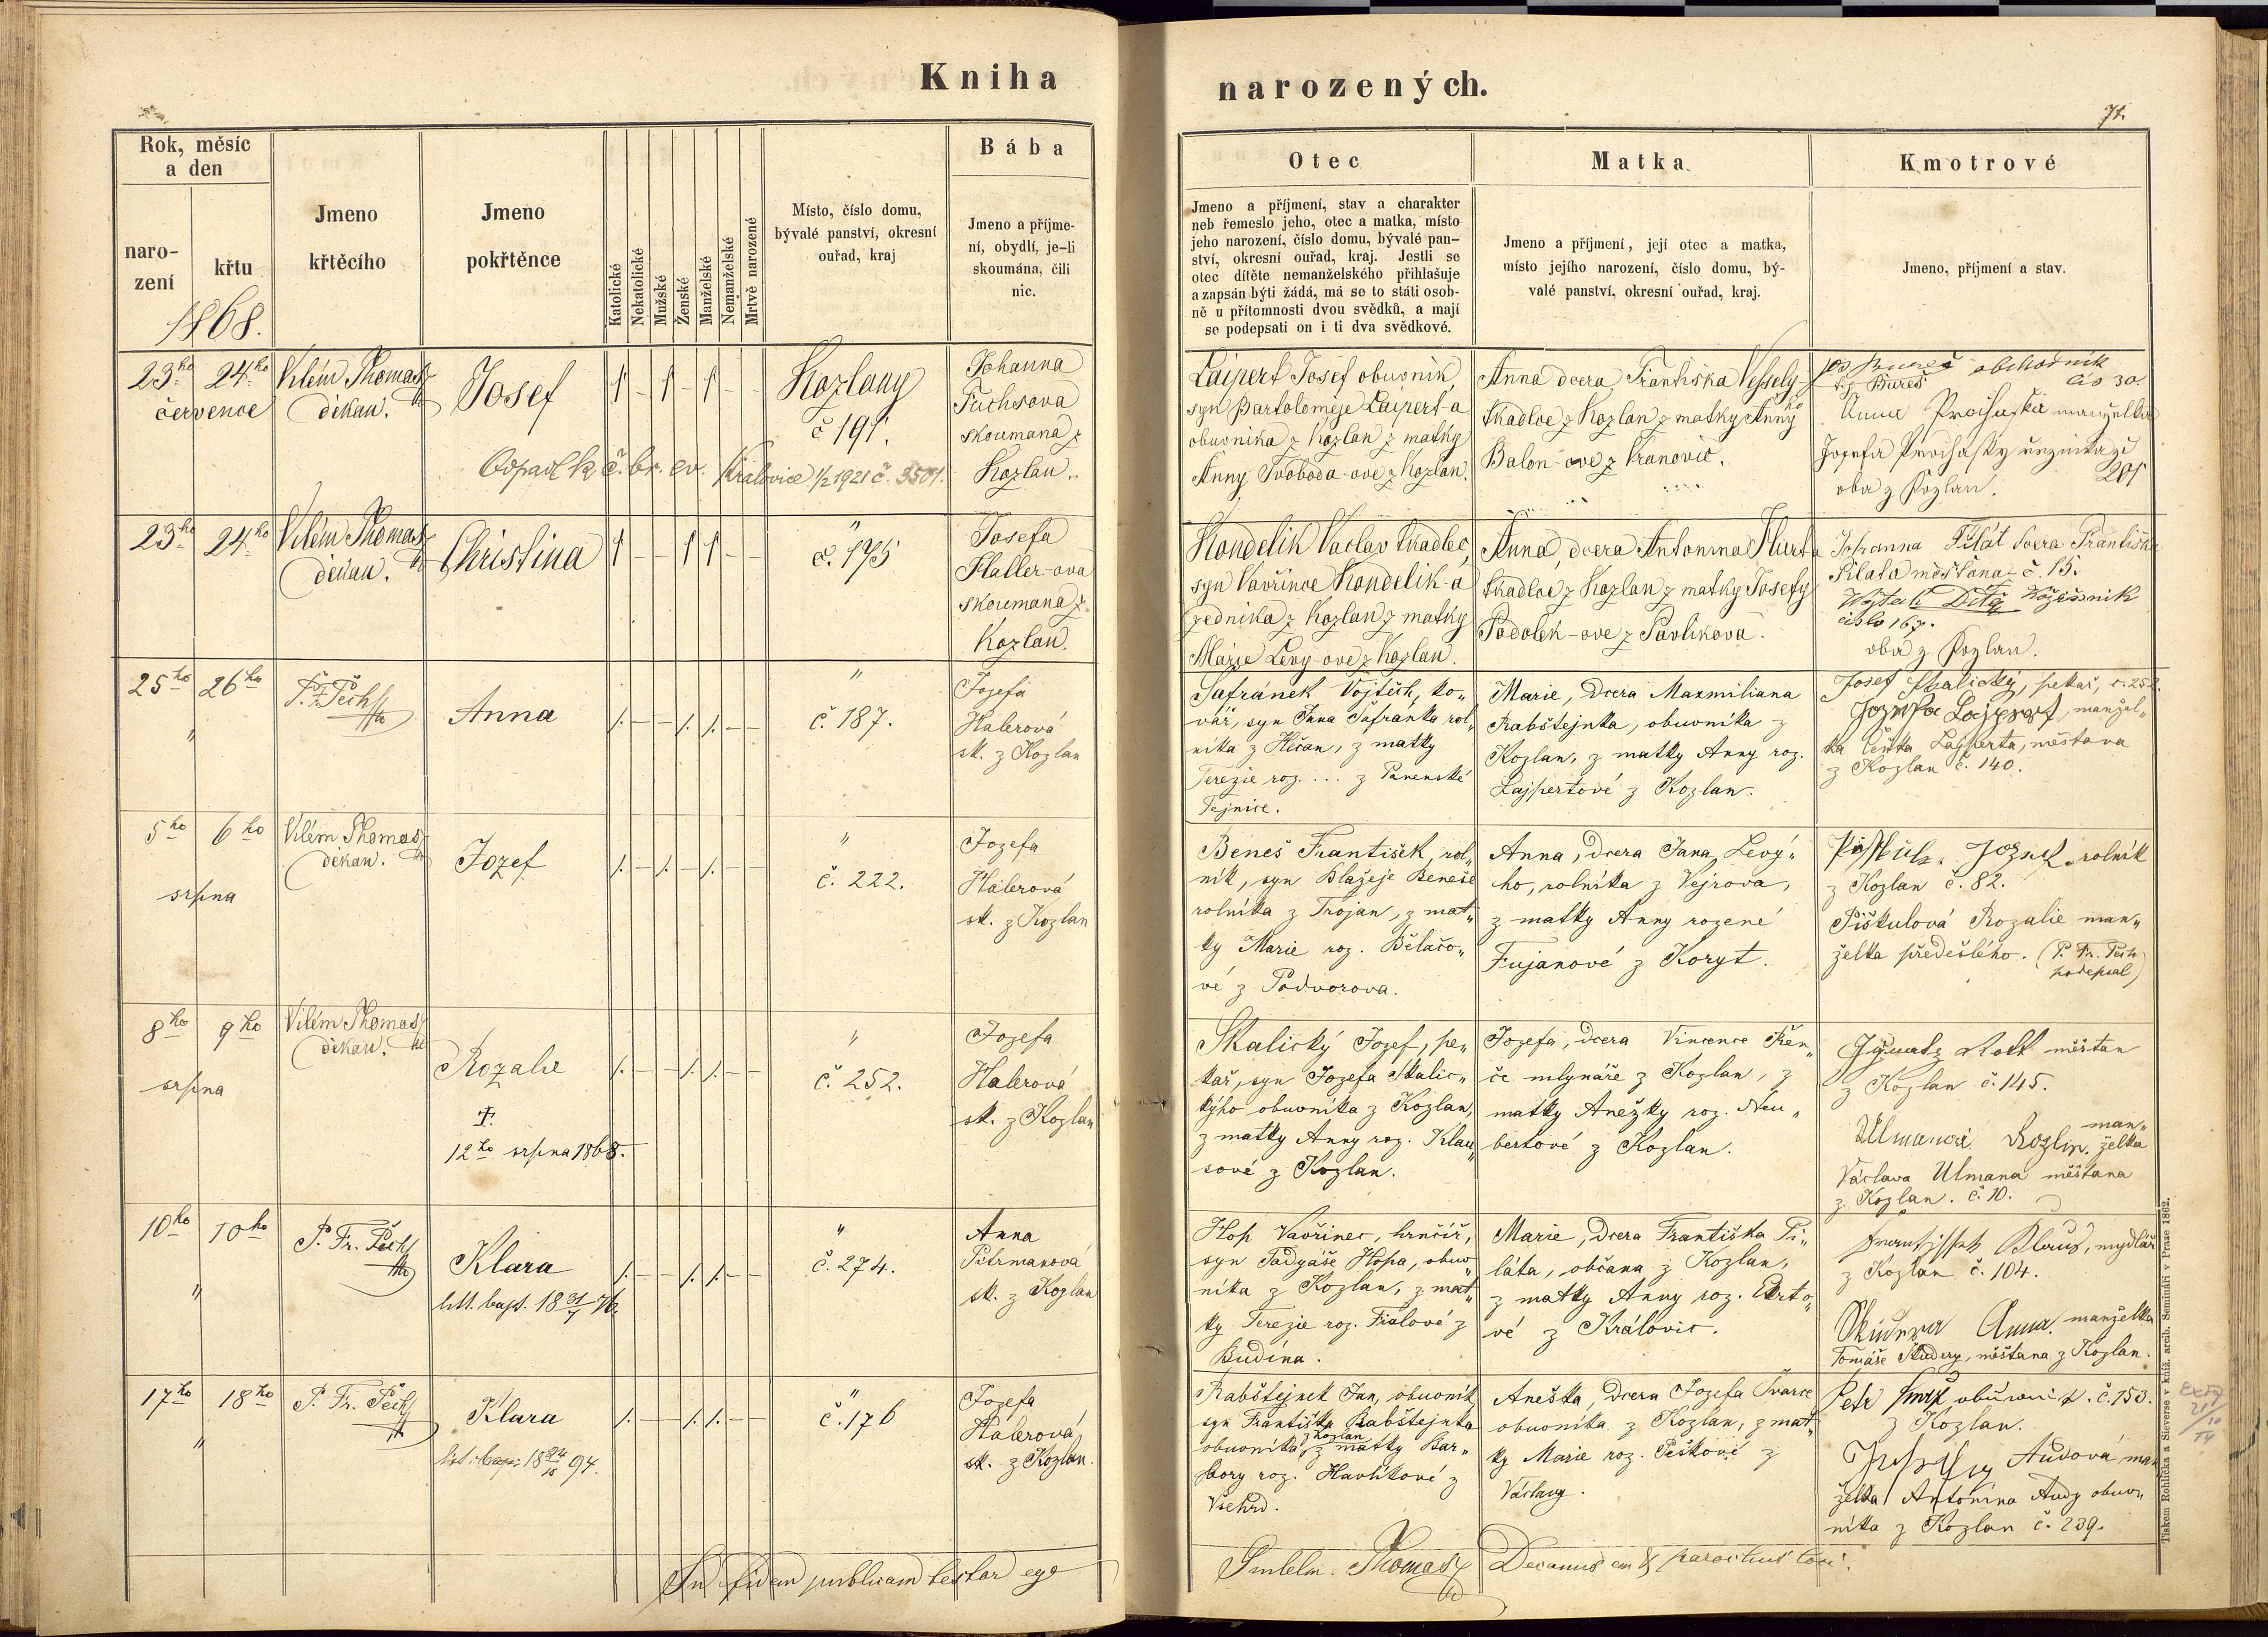 Kniha narozených.
71.
Rok, měsíc
a den
naro-
zení
křtu
1868.
Jmeno
křtěcího
Jmeno
pokřtěnce
Katolické
Nekatolické
Mužské
Ženské
Manželské
Nemanželské
Mrtvě narozené
Místo, číslo domu,
bývalé panství, okresní
ouřad, kraj
Bába
Jmeno a příjme-
ní, obydlí, je-li
skoumána, čili
nic.
Otec
Jmeno a příjmení, stav a charakter
neb řemeslo jeho, otec a matka, místo
jeho narození, číslo domu, bývalé pan-
ství, okresní ouřad, kraj. Jestli se
otec dítěte nemanželského přihlašuje
a zapsán býti žádá, má se to státi osob-
ně u přítomnosti dvou svědků, a mají
se podepsati on i ti dva svědkové.
Matka
Jmeno a příjmení, její otec a matka,
místo jejího narození, číslo domu, bý-
valé panství, okresní ouřad, kraj.
Kmotrové
Jmeno, příjmení a stav.
23ho 24ho
července
Vilém Thomas
děkan.
Josef
Kozlany
č 191.
Odpadl k č. br. ev. Kralovice 1/2 1921 č. 3501.
Johanna
Fuchsova
skoumana z
Kozlan.
Laipert Josef obuvnik,
syn Bartoloměje Laipert-a
obuvnika z Kozlan z matky
Anny Svoboda-ove z Kozlan.
Anna dcera Františka Vessely-
ho
tkadlce z Kozlan z matky Anny
Balon-ove z Kranovic.
Bureš obchodnik
čis 30.
Anna Prochaska manželka
Josefa Prochasky řeznika č
201
oba z Kozlan.
23ho 24ho
Vilém Thomas
děkan.
Christina
"
č. 175
Josefa
Haller-ova
skoumana z
Kozlan.
Kondelik Vaclav tkadlec,
syn Vavřince Kondelik-a
zednika z Kozlan z matky
Marie Levy-ove z Kozlan.
Anna, dcera Antonina Hurta
tkadlce z Kozlan z matky Josefy
Podolek-ove z Pavlikova.
Johanna Pilát dcera Františka
Piláta měšťana č. 15.
Wojtěch Dítě Kožišnik
čislo 167.
oba z Kozlan.
25ho 26ho
"
P. F. Pech
Anna
"
č. 187.
Jozefa
Halerová
sk. z Kozlan
Šafránek Vojtěch, ko„
vář, syn Jana Šafránka rol„
níka z Hěčan, z matky
Terezie roz. ... z Panenské
Tejnice.
Marie, dcera Maxmiliana
Rabštejnka, obuvníka z
Kozlan, z matky Anny roz.
Lajpertové z Kozlan.
Josef Skalický, pekař, č. 252.
Jozefa Lajpert, manžel„
ka Čeňka Lajperta, měšťana
z Kozlan č. 140.
5ho 6ho
srpna
Vilém Thomas
děkan.
Jozef
"
č. 222.
Jozefa
Halerová
sk. z Kozlan
Beneš František, rol„
ník, syn Blažeje Beneše
rolníka z Trojan, z mat„
ky Marie roz. Bělačo„
vé z Podvorova.
Anna, dcera Jana Levý„
ho, rolníka z Vejrova,
z matky Anny rozené
Fujanové z Koryt.
Jozef rolník
z Kozlan č. 82.
Piškulová Rozalie man„
želka předešlého. (P. Fr. Pech
podepsal)
8ho 9ho
srpna
Vilém Thomas
děkan.
Rozalie
†.
12ho srpna 1868.
"
č. 252.
Jozefa
Halerová
sk. z Kozlan
Skalický Jozef, pe„
kař, syn Jozefa Skalic„
kýho obuvníka z Kozlan,
z matky Anny roz. Klau„
sové z Kozlan.
Jozefa, dcera Vincence Řen„
če mlynáře z Kozlan, z
matky Anežky roz. Neu„
bertové z Kozlan.
Ignatz Rott měštan
z Kozlan č. 145.
man„
Ulmanová Rozlie. želka
Václava Ulmana měštana
z Kozlan. č. 10.
10ho 10ho
"
P. Fr. Pech
Klara
litt. bapt. 18 31/7 76
"
č. 274.
Anna
Pitrmanová
sk. z Kozlan
Hop Vavřinec, hrnčíř,
syn Tadyáše Hopa, obuv„
níka z Kozlan, z mat„
ky Terezie roz. Fialové z
Budína.
Marie, dcera Františka Pi„
láta, občana z Kozlan,
z matky Anny roz. Ekrto„
vé z Královic.
Klaus, mydlář
z Kozlan č. 104.
Anna. manželka
Tomáše Studery, měštana z Kozlan.
17ho 18ho
"
P. Fr. Pech
Klara
lit. bap: 18 24/10 94.
"
č. 176
Jozefa
Halerová,
sk. z Kozlan.
Rabštejnek Jan, obuvník
syn Františka Rabštejnka
z Kozlan
obuvníka, z matky Bar„
bory roz. Havlíkové z
Všehrd.
Anežka, dcera Jozefa Švarce
obuvníka z Kozlan, z mat„
ky Marie roz. Peškové z
Václavy.
Petr obuvník. č. 153.
z Kozlan.
Audová man„
želka Antonína Audy obuv„
níka z Kozlan č. 239.
In fidem publicam testor ego
Guilelm. Thomas Decanus em & parochus loci.
Tiskem Rohlíčka a Sieverse v kníž. arcib. Semináři v Praze 1862.